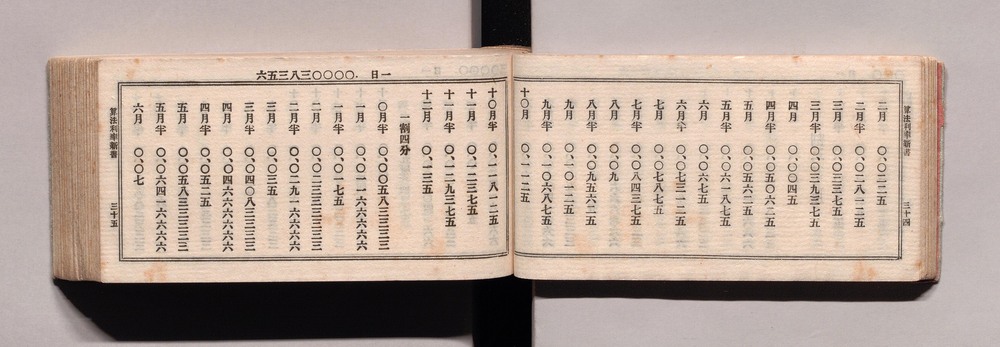 算法利率新書 三十四
二月 〇、〇二二五
二月半 〇、〇二八一二五
三月 〇、〇三三七五
三月半 〇、〇三九三七五
四月 〇、〇〇四五
四月半 〇、〇五〇六二五
五月 〇、〇五六二五
五月半 〇、〇六一八七五
六月 〇、〇六七五
六月半 〇、〇七三一二五
七月 〇、〇七八七五
七月半 〇、〇八四三七五
八月 〇、〇九
八月半 〇、〇九五六二五
九月 〇、〇一二五
九月半 〇、一〇六八七五
十〇月 〇、一一二五
一日 .〇〇〇〇三八三五六
十〇月半 〇、一一八一二五
十一月 〇、一二三七五
十一月半 〇、一二九三七五
十二月 〇、一三五
一割四分
〇月半 〇、〇〇五八三三三三
一月 〇、〇一一六六六六六
一月半 〇、〇一七五
二月 〇、〇二三三三三三三
二月半 〇、〇二九一六六六六
三月 〇、〇三五
三月半 〇、〇四〇八三三三三
四月 〇、〇四六六六六六六
四月半 〇、〇五二五
五月 〇、〇五八三三三三三
五月半 〇、〇六四一六六六六
六月 〇、〇七
算法利率新書 三十五